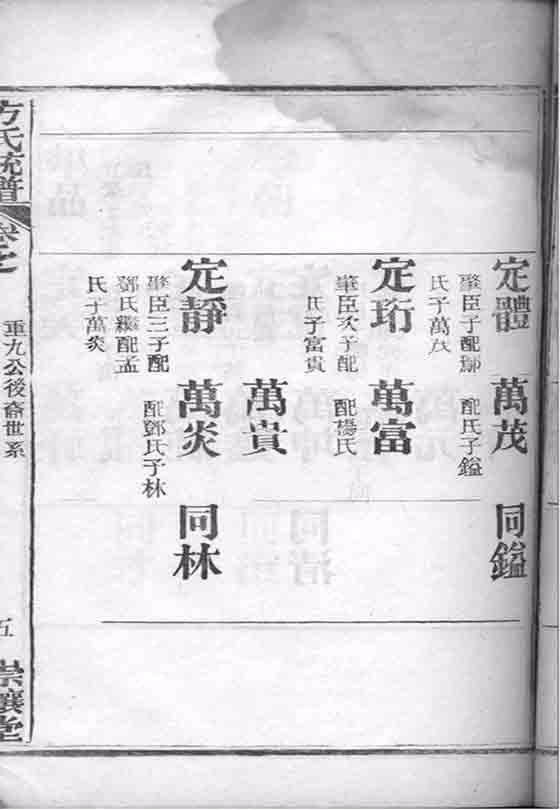 定體
肇臣子配鄧
氏子萬茂
萬茂
配氏子鎰
同鎰
定珩
肇臣次子配
氏子富貴
萬富
配楊氏
萬貴
定靜
肇臣三子配
鄧氏繼配孟
氏子萬炎
萬炎
配鄧氏子林
同林
方氏統譜
卷之
重九公後裔世系
五
崇讓堂